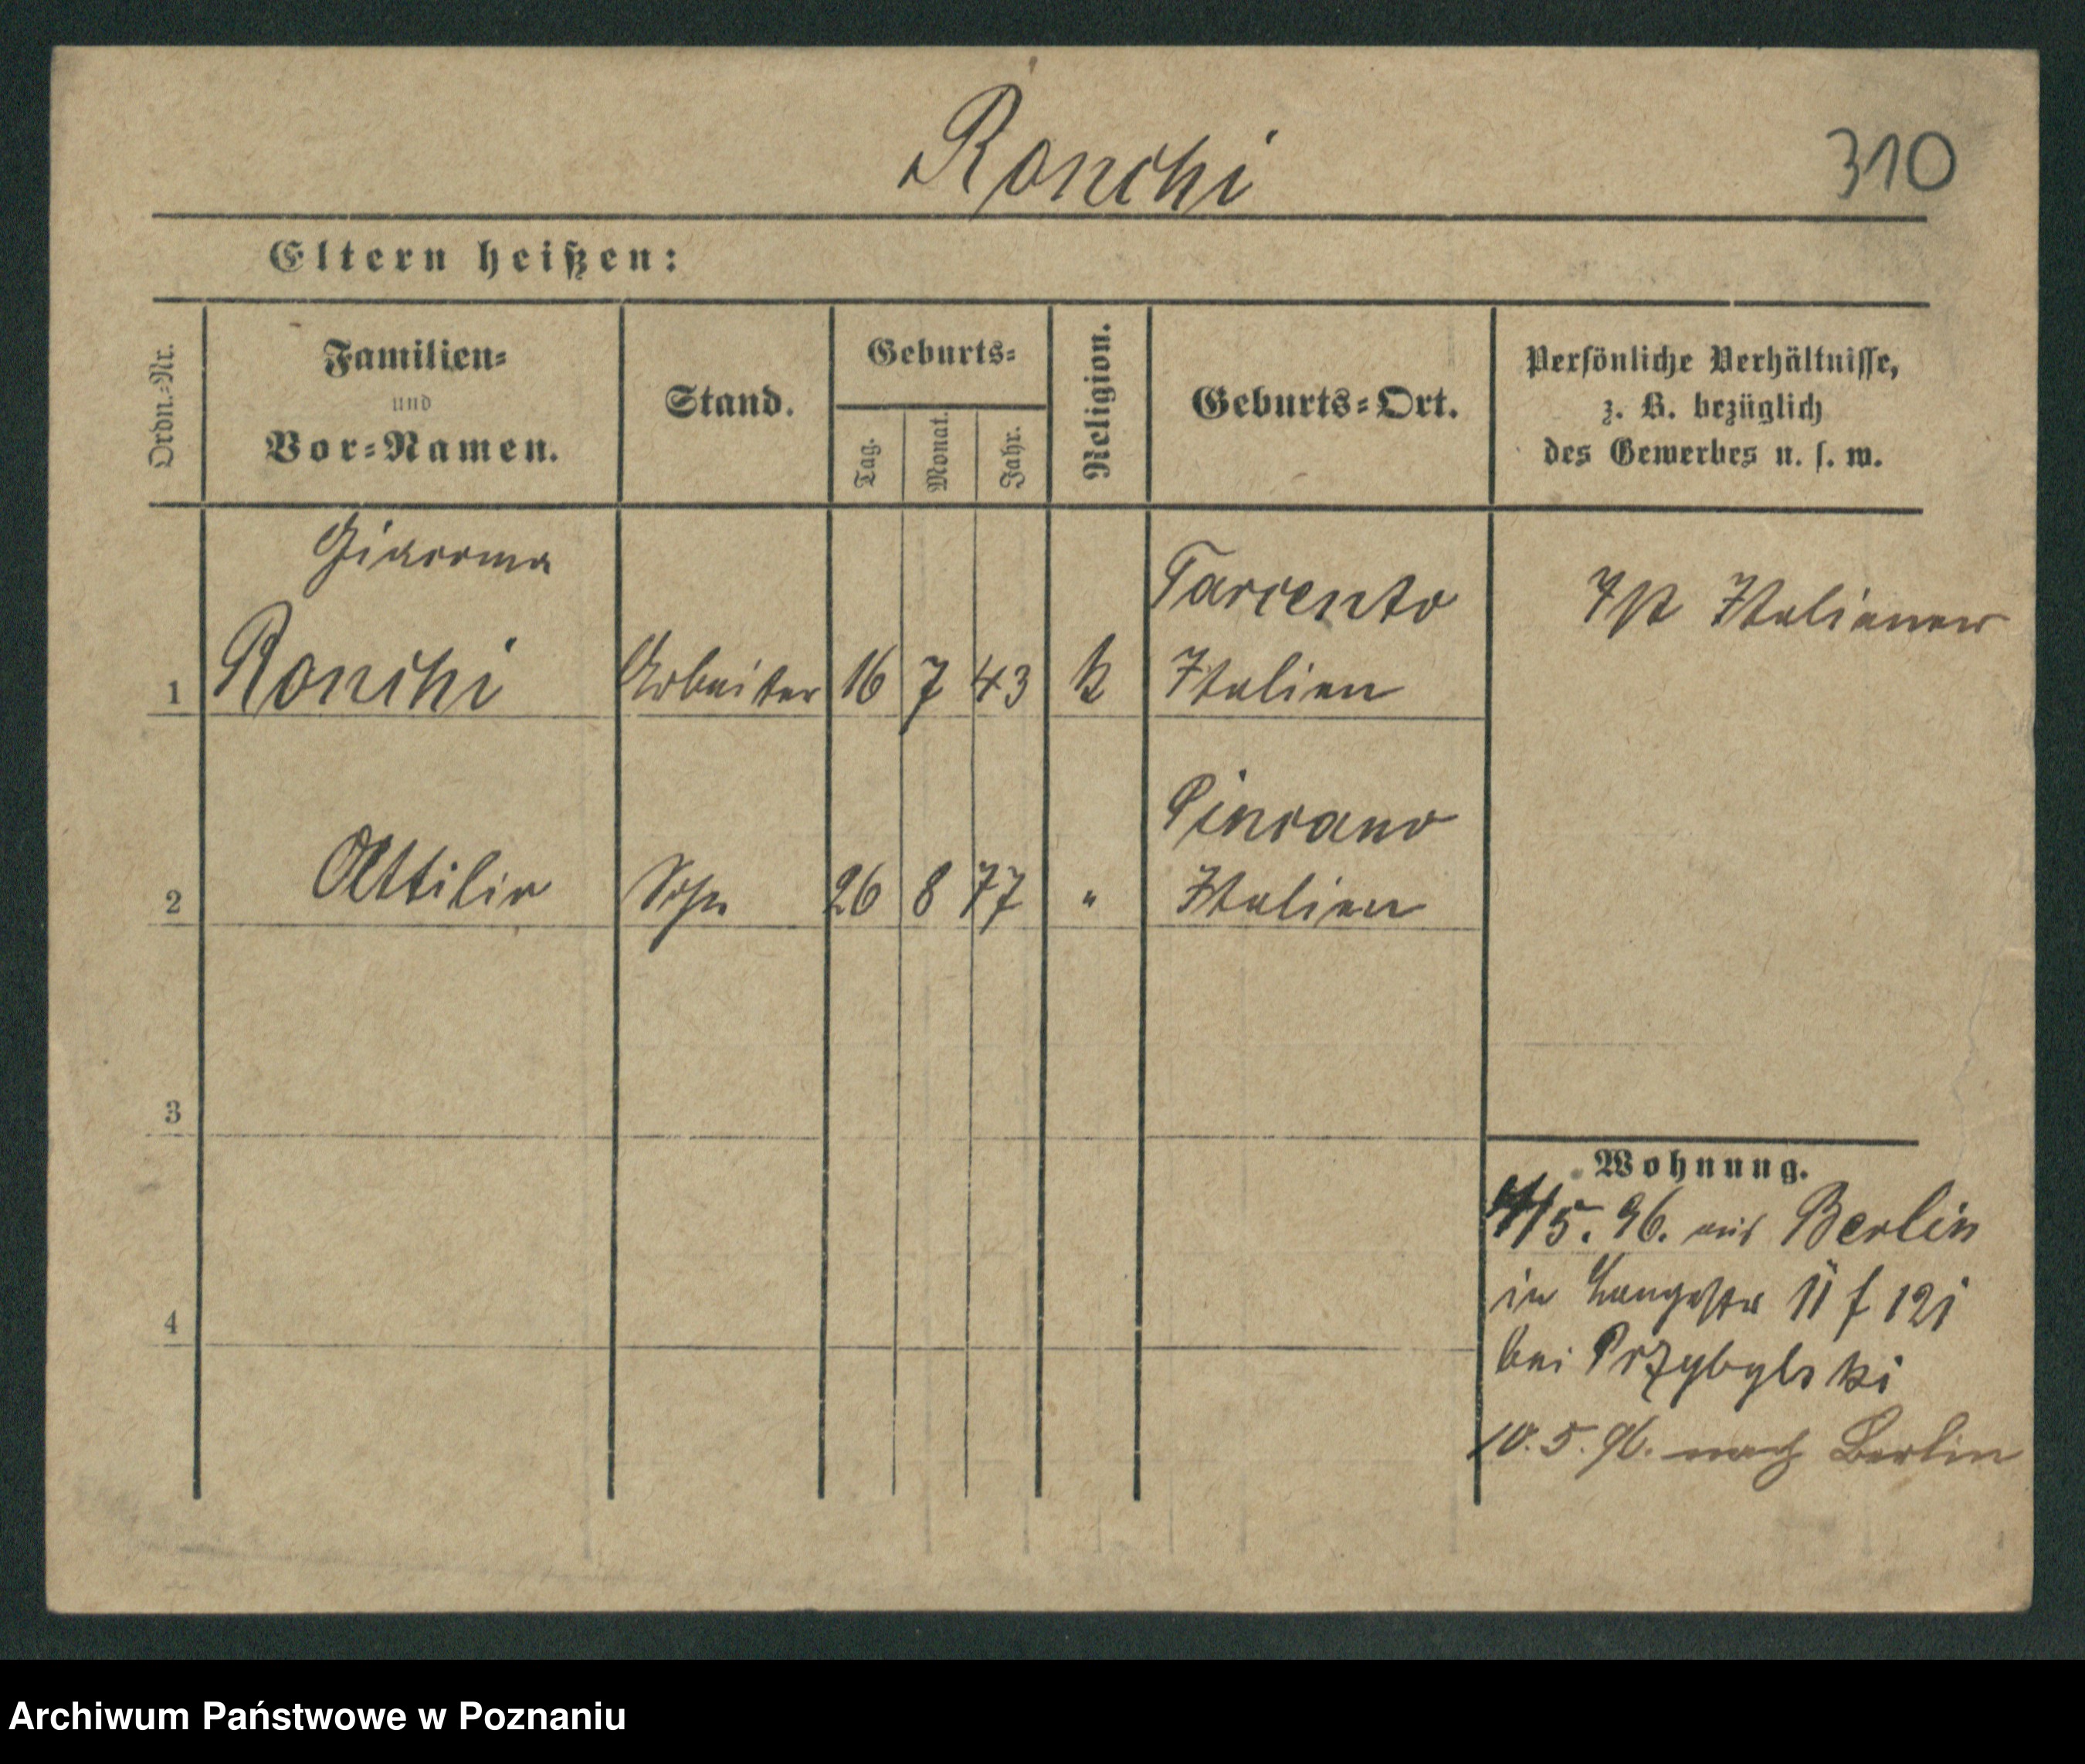 Ronchi
310
Eltern heißen:
Ordn.-Nr.
Familien-
und
Vor-Namen.
Stand.
Geburts-
Tag.
Monat.
Jahr.
Religion.
Geburts-Ort.
Persönliche Verhältnisse,
z. B. bezüglich
des Gewerbes u. s. w.
Giacomo
1 Ronchi Arbeiter 16 7 43 k Tarcento
Italien
Ist Italiener
2 Attilio Sohn 26 8 77 " Pinzano
Italien
3
4
Wohnung.
5. 96. aus Berlin
in Langestr 11 f 12j
bei Przybylski
10. 5. 96. nach Berlin
Archiwum Państwowe w Poznaniu